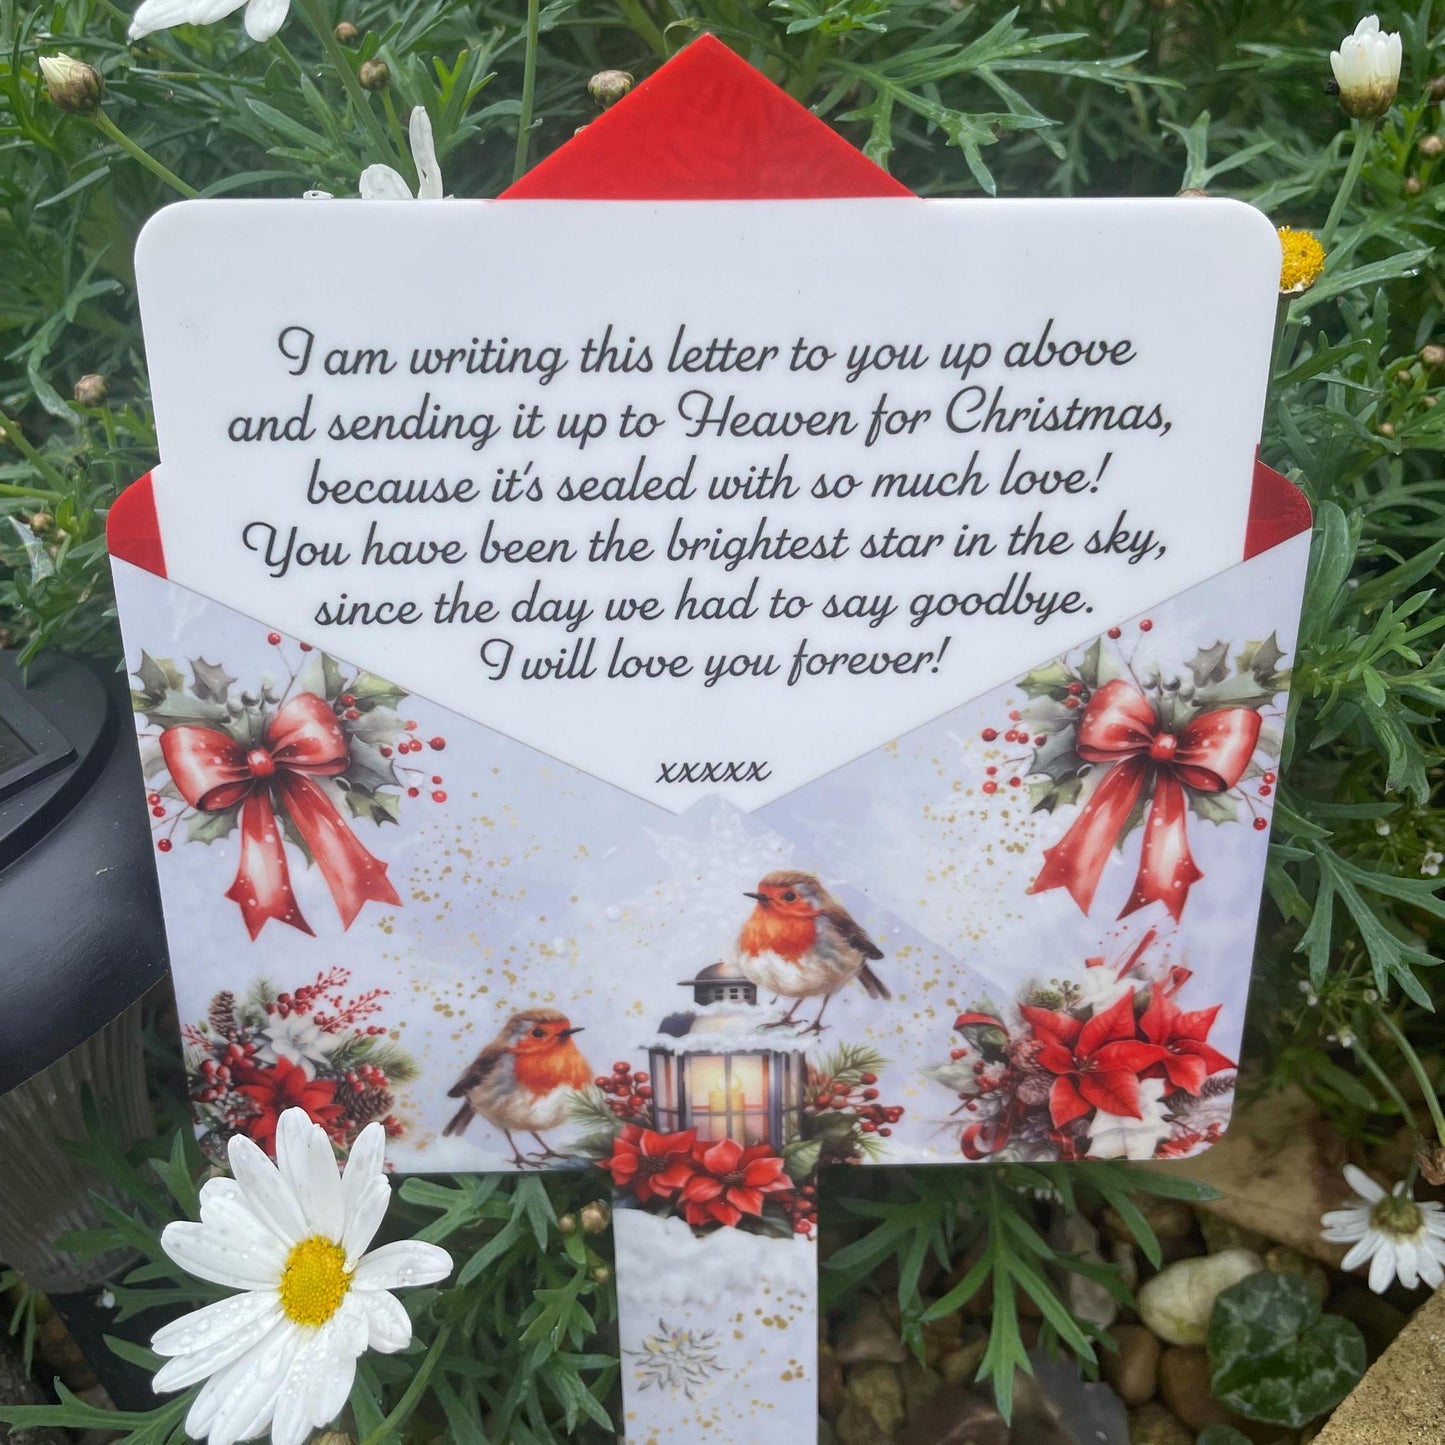 I am writing this letter to you up above
and sending it up to Heaven for Christmas,
because it's sealed with so much love!
You have been the brightest star in the sky,
since the day we had to say goodbye.
I will love you forever!
xxxxx